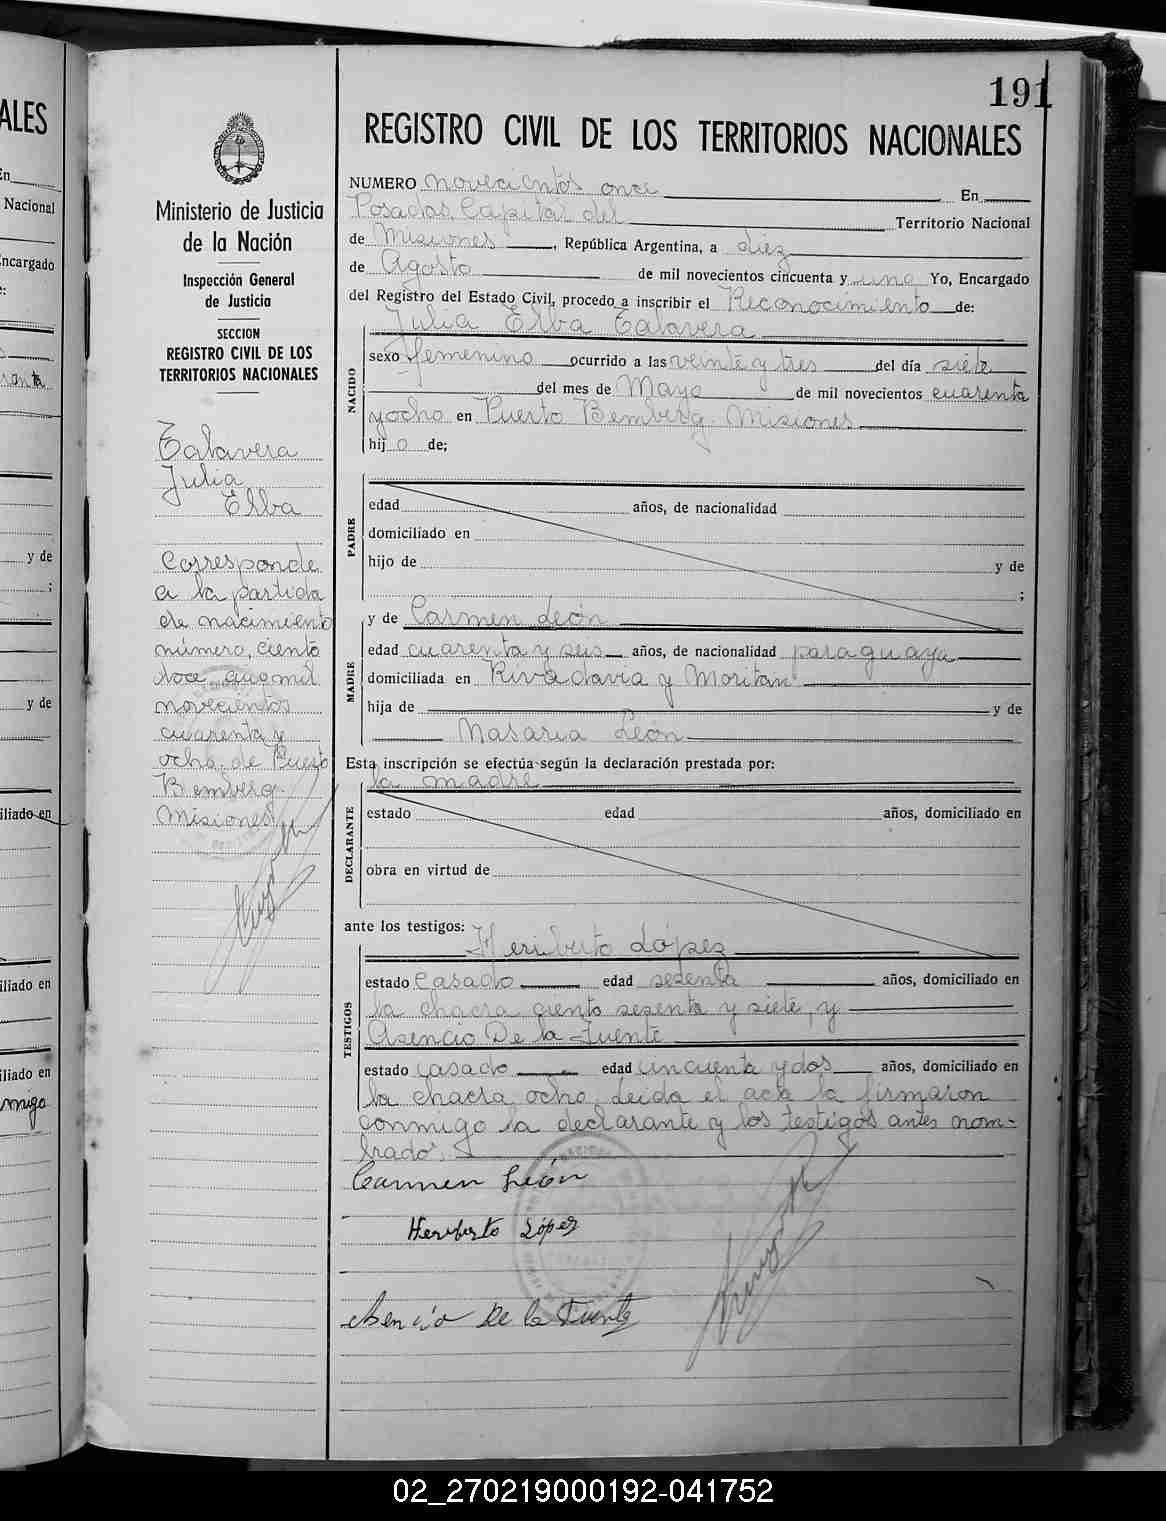 191
REGISTRO CIVIL DE LOS TERRITORIOS NACIONALES
Ministerio de Justicia
de la Nación
Inspección General
de Justicia
SECCION
REGISTRO CIVIL DE LOS
TERRITORIOS NACIONALES
Talavera
Julia
Elba
Corresponde
a la partida
de nacimiento
número, ciento
doce, año mil
novecientos
cuarenta y
ocho de Puerto
Bemberg
Misiones
NUMERO novecientos once En
Posadas, Capital del Territorio Nacional
de Misiones, República Argentina, a diez
de Agosto de mil novecientos cincuenta y uno Yo, Encargado
del Registro del Estado Civil, procedo a inscribir el Reconocimiento de:
Julia Elba Talavera
NACIDO
sexo femenino ocurrido a las veinte y tres del día siete
del mes de Mayo de mil novecientos cuarenta
y ocho en Puerto Bemberg Misiones
hij a de;
PADRE
edad años, de nacionalidad
domiciliado en
hijo de y de
;
y de Carmen León
MADRE
edad cuarenta y seis años, de nacionalidad paraguaya
domiciliada en Rivadavia y Moritán
hija de y de
Nasaria León
Esta inscripción se efectúa según la declaración prestada por:
la madre
DECLARANTE
estado edad años, domiciliado en
obra en virtud de
ante los testigos:
Heriberto López
TESTIGOS
estado casado edad sesenta años, domiciliado en
la chacra ciento sesenta y siete, y
Asencio De la Fuente
estado casado edad cincuenta y dos años, domiciliado en
la chacra ocho, leida el acta la firmaron
conmigo la declarante y los testigos antes nom-
brados.
Carmen León
Heriberto López
Asencio De la Fuente
ALES
En
Nacional
Encargado
y de
;
y de
iliado en
iliado en
iliado en
02_270219000192-041752